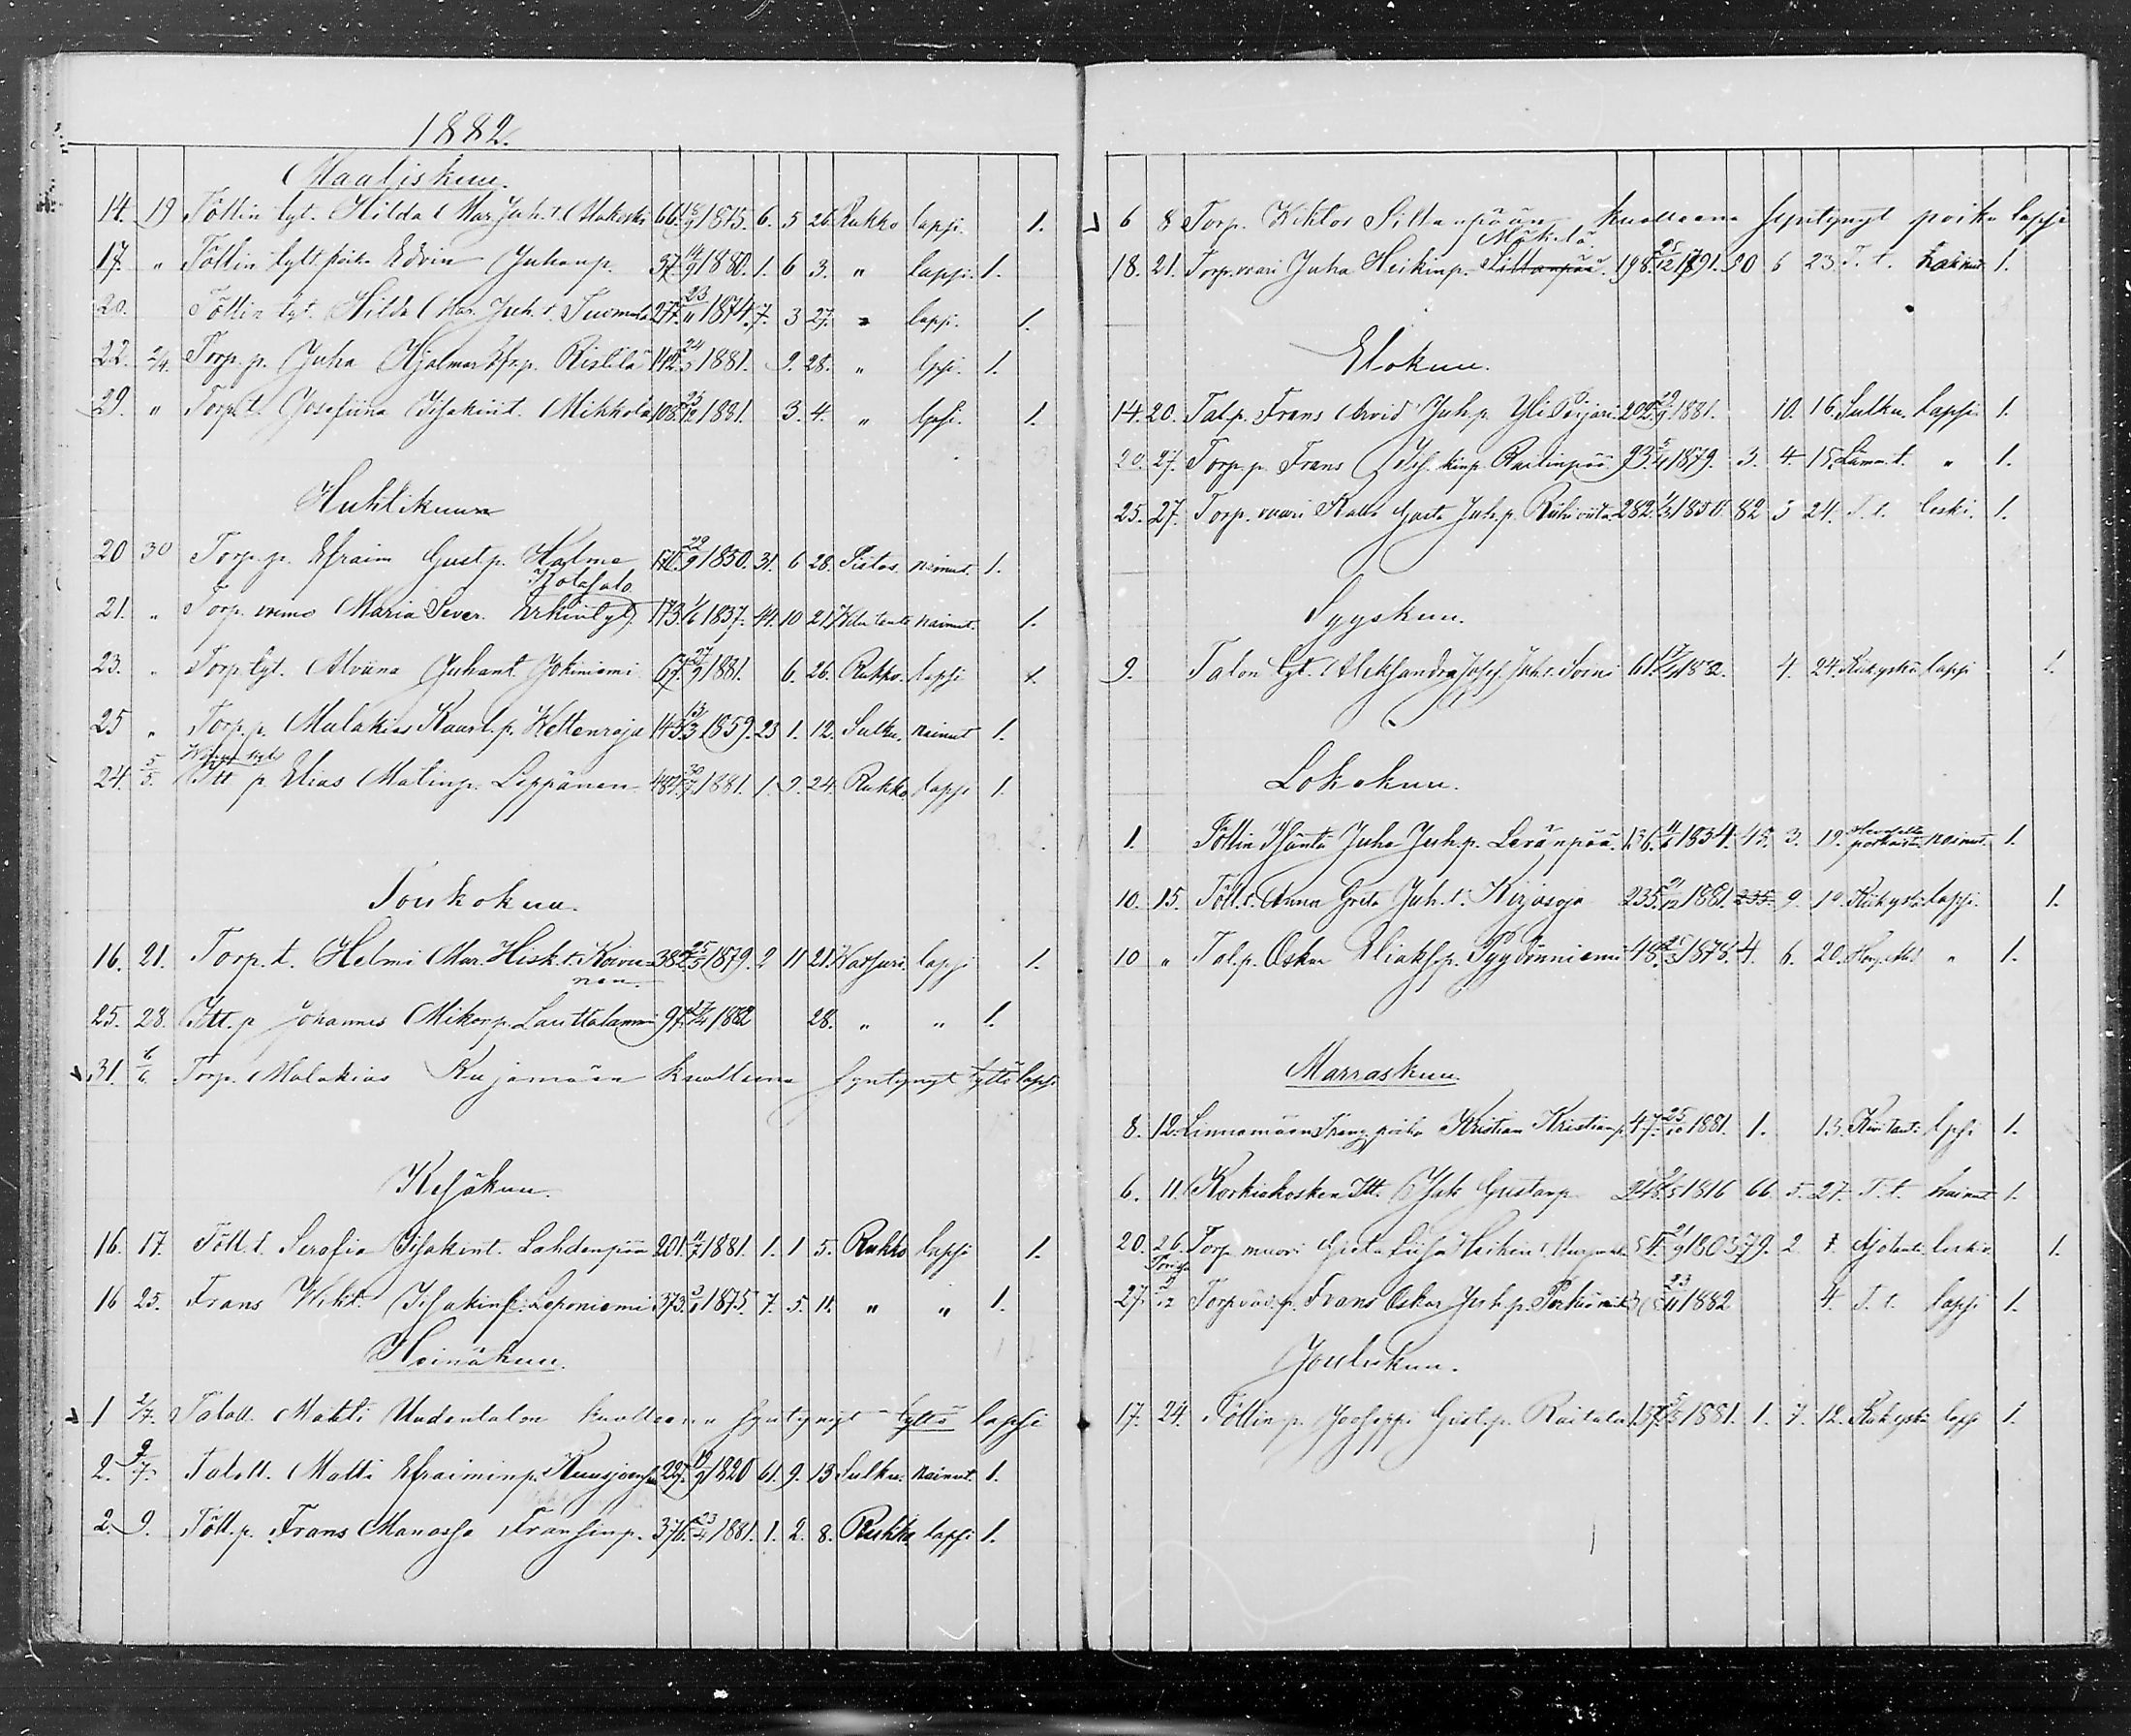 1882.
Maaliskuu.
14. 19 Töllin tyt. Hilda Mar. Juh. t. 66. 1875. 6. 5 26. Rukko lapsi. 1.
17. " Töllin poika Edvin Juhanp. 37. 14/9 1880. 1. 6 3. " lapsi. 1.
20. Töllin tyt. Hilda Mar. Juh. t. 277. 23/11 1874. 7. 3 27. " lapsi. 1.
22. 2/4. Torp. p. Juha Hjalmar p. Ristilä 112. 1881. 9. 28. " lpsi. 1.
29. " Torp. t. Josefiina Isakint. Mikkola 108. 25/12 1881. 3. 4. " lpsi. 1.
Huhtikuu
20 30 Torp. p. Efraim Gust. p. Halme 22/9 1850. 31. 6 28. nainut. 1.
21. " Torp. vaimo Maria Sever. Erkintyt. 173 1837. 44. 10 21. nainut. 1.
23. " Torp. tyt. Alviina Juhant. Jokiniemi 67. 27/9 1881. 6. 26. Rukko. lapsi 1.
25 " Torp. p. Malakias Kaarl. p. Kettenraja 145. 13/3 1859. 23 1. 12. Sulku. nainut 1.
24. 5/5. Itt p. Elias Matinp. Leppänen 1881. 1. 9. 24. Rukko lapsi 1.
Toukokuu.
16. 21. Torp. t. Helmi Mar. Hisk. t. Koivu= 382. 25/5 1879. 2 11 21. lapsi 1.
nen.
25. 28. Itt. p Johannes Mikonp. Lauttalammi 97. 27/4 1882 28. " " 1.
31. 6/6. Torp. Malakias Kujamäen kuolleena syntynyt tyttö lapsi
Kesäkuu.
16. 17. Töll. t. Serafia Isakint. Lahdenpää 201. 11/7 1881. 1. 1 5. Rukko lapsi 1.
16 25. Frans Vikt. Isakinp. Leponiemi 373. 1875. 7. 5. 11. " " 1.
Heinäkuu.
1 2/7. Taloll. Matti Uudentalon kuolleena syntynyt tyttö lapsi
2. 9/7. Taloll. Matti Efraiminp. 227. 19/9 1820 61. 9. 13 Sulku. nainut. 1.
2. 9. Töll. p. Frans Manasse Fransinp. 376. 23/4 1881. 1. 2. 8. Rukko lapsi 1.
6 8 Torp. Viktor Siltanpään kuolleena syntynyt poika lapsi
Mäkelä.
18. 21. Torp. vaari Juha Heikinp. Siltanpää. 198. 25/12 1791. 90 6 23. T. t. 1.
Elokuu.
14. 20. Tal. p. Frans Arvid Juh. p. Yli Porjari 202. 29/9 1881. 10. 16. Sulku. lapsi 1.
20. 27. Torp. p. Frans Railinpää 93. 5/4 1879. 3. 4. 15. " 1.
25. 27. Torp. vaari Juh. p. 282. 82 5 24. T. t. leski. 1.
Syyskuu.
9. Talon tyt. Aleksandra Josef. Juh. t. Soini 61. 1882. 4. 24. lapsi 1.
Lokakuu.
1. Töllin Isäntä Juha Juh. p. Levänpää. 136. 1834. 48. 3. 19. nainut 1.
10. 15. Töll. t. Anna Greta Juh. t. Kirjasoja 235. 21/12 1881. 235. 9. 19. lapsi. 1.
10 " Tal. p. Oskar Eliaks. p. Pyydönniemi 48. 1878. 4. 6. 20. " 1.
Marraskuu.
8. 12. Linnamäen poika Kristian Kristianp. 47. 25/10 1881. 1. 13. lpsi 1.
6. 11. Korkiakosken Itt. Isak Gustanp 1816 66. 5. 27. T. t. nainut 1.
20. 26. Torp. muori Greta Liisa Heikint. 1803 79. 2 leski. 1.
27. Torp. p. Frans Oskar Juh. p. 23/11 1882 4. T. t. lapsi 1.
Joulukuu.
17. 24. Töllin p. Jooseppi Gust. p. Raitala 157. 5/5 1881. 1. 7. 12. lapsi 1.